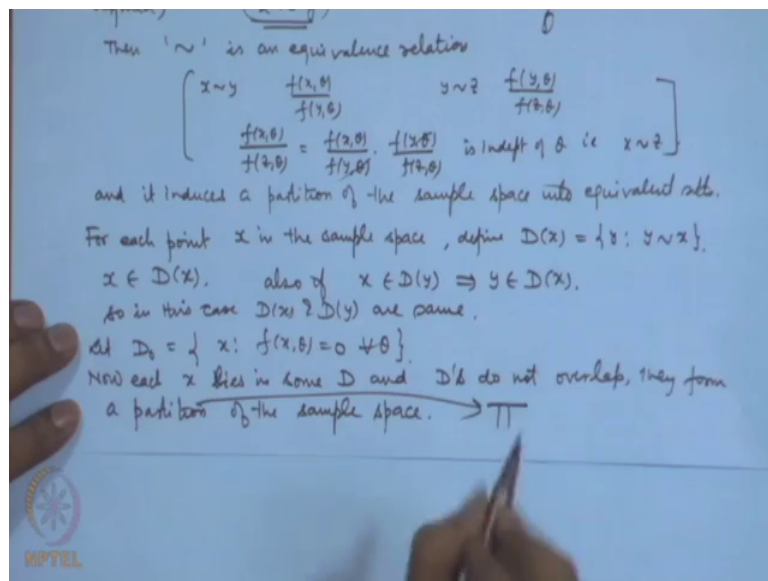 Then '~' is an equivalence relation
x~y f(x,θ)/f(y,θ) y~z f(y,θ)/f(z,θ)
f(x,θ)/f(z,θ) = f(x,θ)/f(y,θ) . f(y,θ)/f(z,θ) is indept of θ ie x~z
and it induces a partition of the sample space into equivalent sets.
For each point x in the sample space, define D(x) = {y: y~x}.
x ∈ D(x). also if x ∈ D(y) ⇒ y ∈ D(x).
so in this case D(x) & D(y) are same.
Let D₀ = { x: f(x,θ) = 0 ∀ θ }.
Now each x lies in some D and D's do not overlap, they form
a partition of the sample space. → π
NPTEL